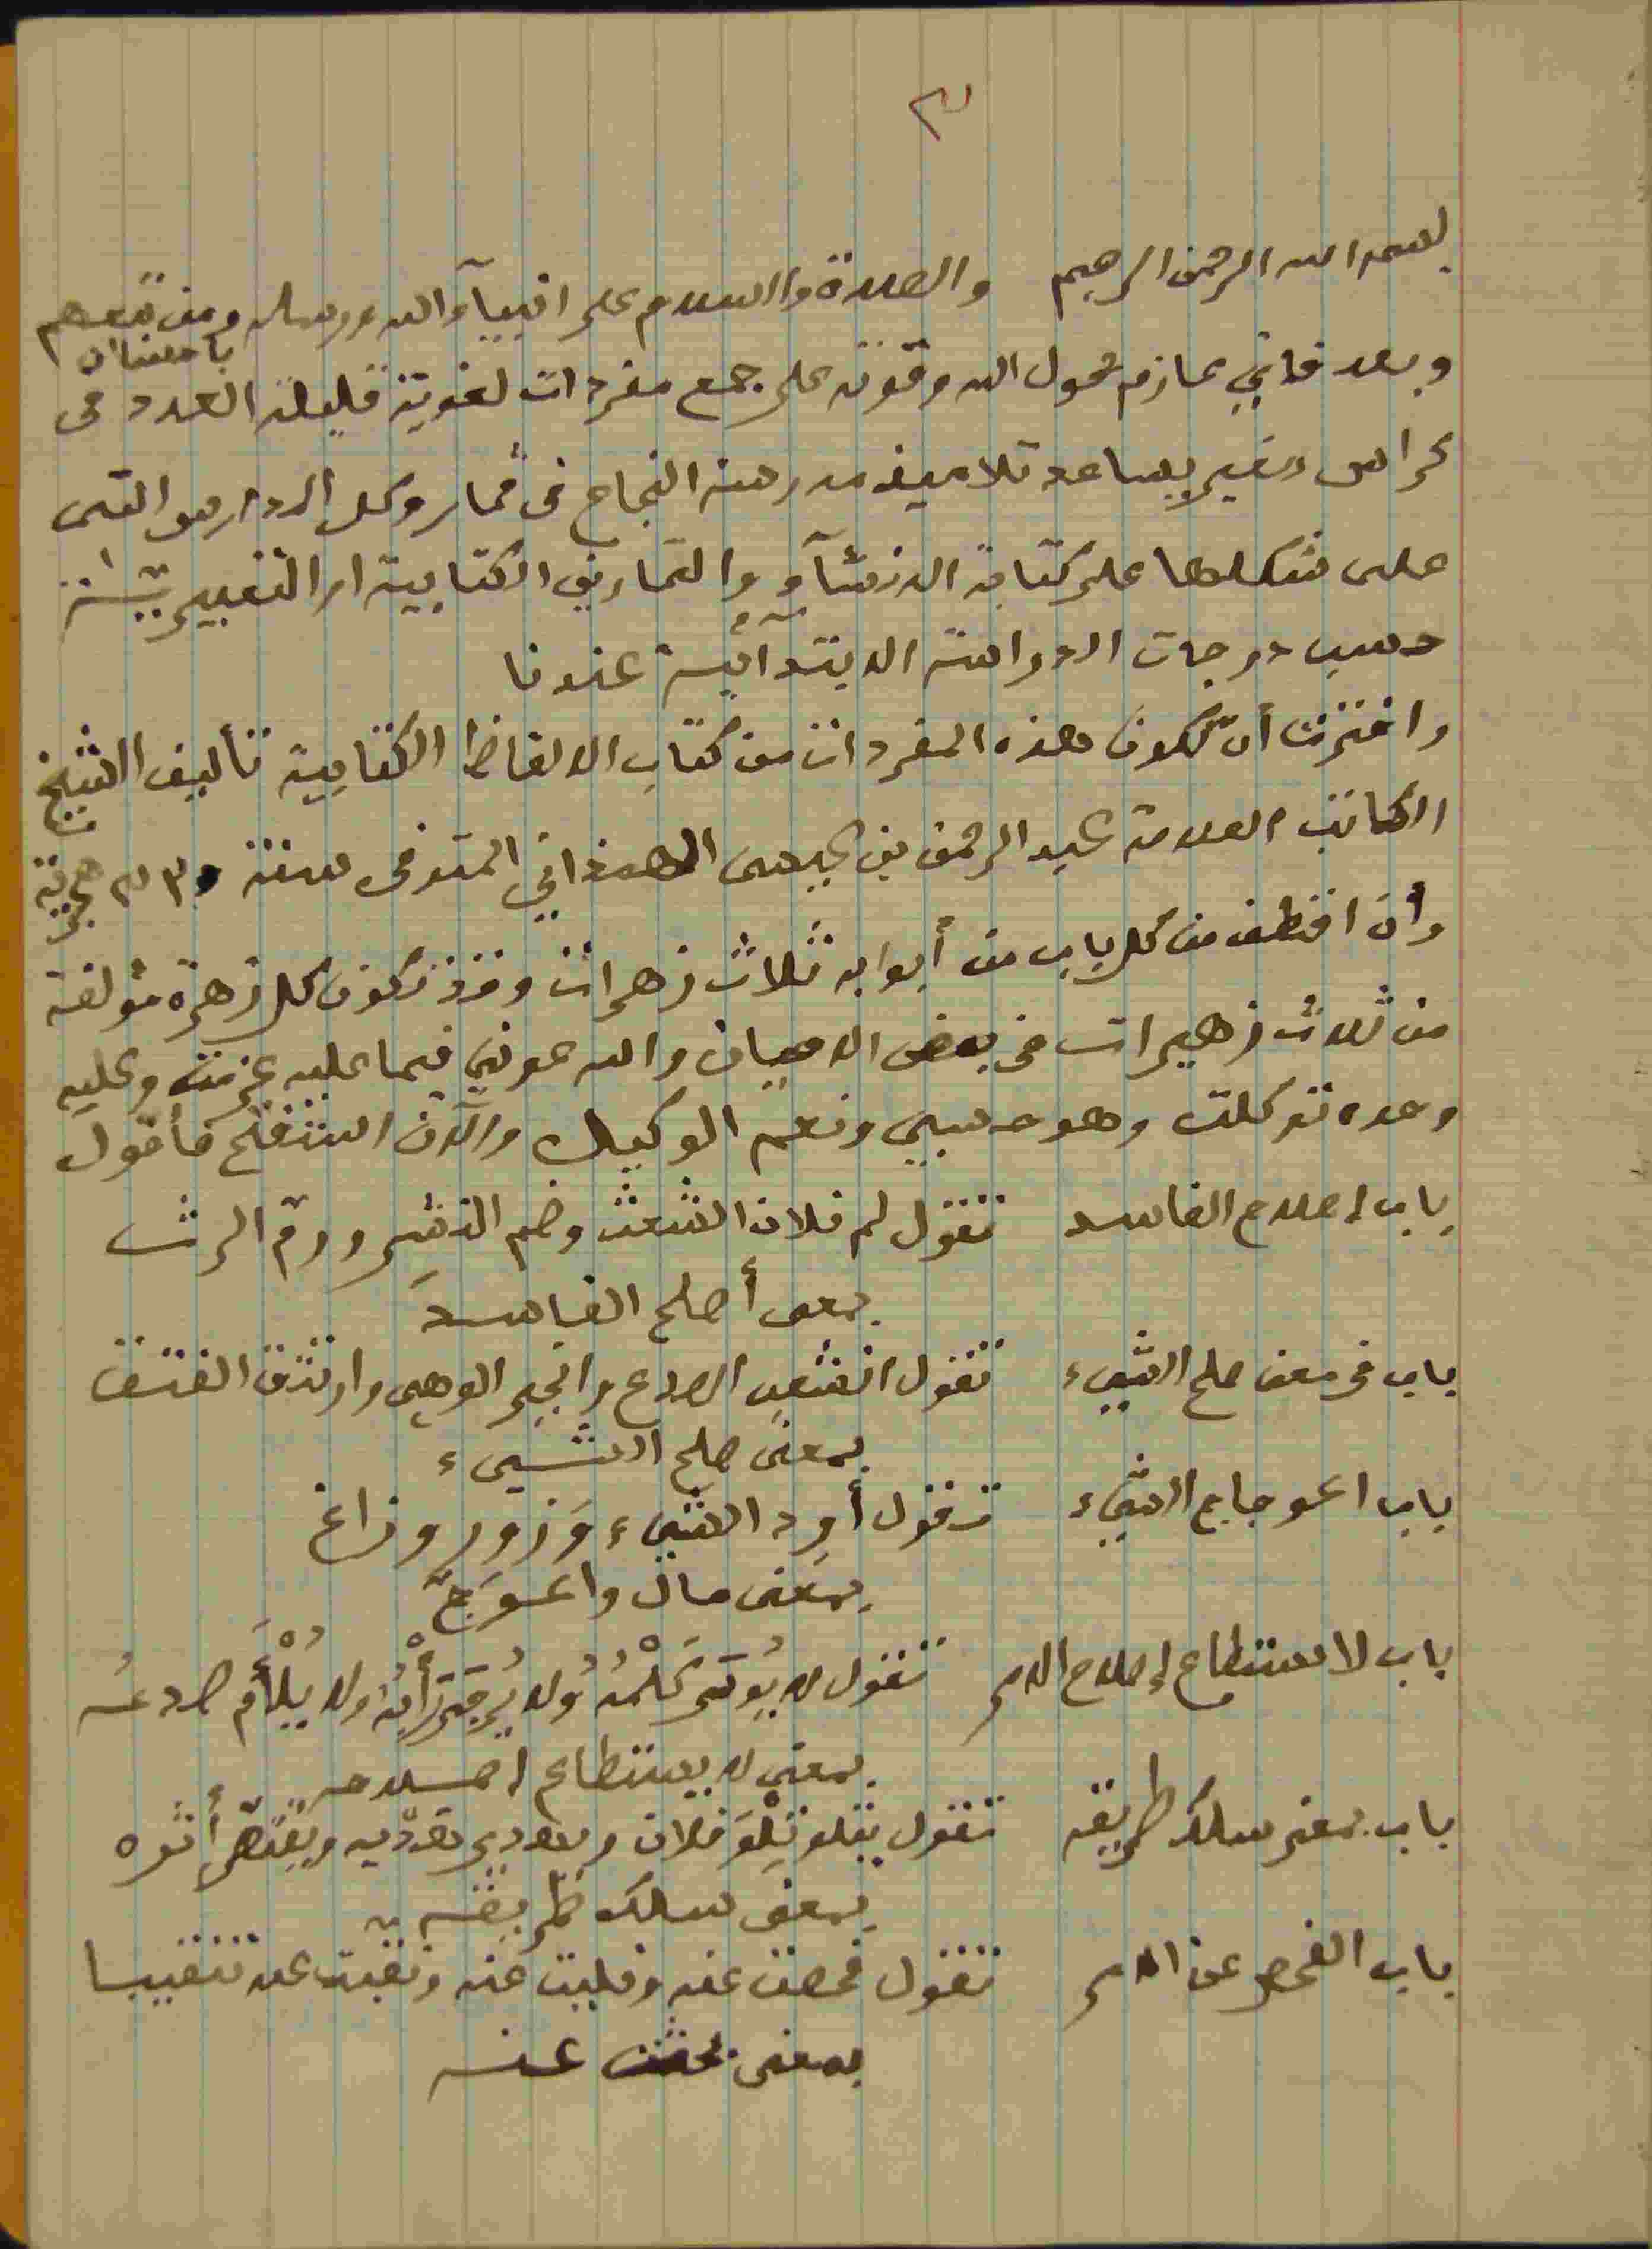 ٣
بسم الله الرحمن الرحيم والصلاة والسلام على انبيآء الله ورسله ومن تبعهم باحسان
وبعد فاني عازم بحول الله وقوته على جمع مفردات لغوية قليلة العدد فى
كراس صغير يساعد تلاميذ مدرسة النجاح فى قمار وكل المدارس التى
على شكلها على كتابة الانشآء والتمارين الكتابية او التعبيرية
حسب درجات الدراسة الابتدآئية عندنا
واخترت أن تكون هذه المفردات من كتاب الالفاظ الكتابية تأليف الشيخ
الكاتب العلامة عبد الرحمن بن عيسى الهمذاني المتوفى سنة ٣٢٠ هجرية
وأن اقتطف من كل باب من أبوابه ثلاث زهرات وقد تكون كل زهرة مؤلفة
من ثلاث زهيرات فى بعض الاحيان والله عوني فيما عليه عزمت وعليه
وحده توكلت وهو حسبي ونعم الوكيل والآن استفتح فأقول
باب إصلاح الفاسد تقول لم فلان الشعث وضم النشر ورمّ الرث
بمعنى أصلح الفاسد
باب فى معنى صلح الشيء تقول انشعب الصدع وانجبر الوهي وارتتق الفتق
بمعنى صلح الشيء
باب اعوجاج الشيء تقول أوِد الشيء وَزور وزاغ
بمعنى مال واعوَجّ
باب لا يستطاع إصلاح الامر تقول لا يُوسَى كَلْمُهُ ولا يُرتق ولا يُلْأَم صدعُه
بمعنى لا يستطاع إصلاحه
باب بمعنى سلك طريقه تقول يتلو تِلْوَ فلان ويقتصّ أثره
بمعنى سلك طريقه
باب الفحص عن الامر تقول فحصت عنه ونقبت عنه تنقيبا
بمعنى بحثت عنه